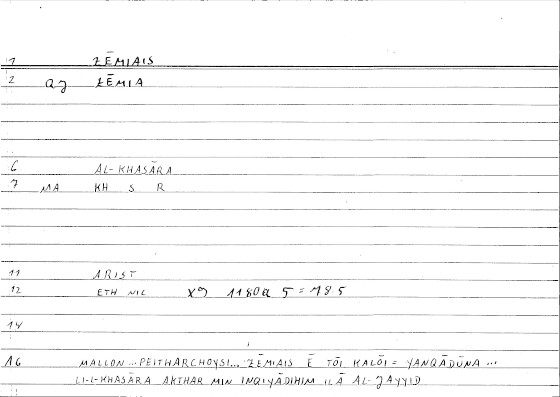 1 ZĒMIAIS
2 ZĒMIA
6 AL-KHASĀRA
7 MA KH S R
11 ARIST
12 ETH NIC X9 1180a 5 = 78.5
14
16 MALLON ... PEITHARCHOYSI... ZĒMIAIS Ē TŌI KALŌI = YANQĀDŪNA ...
LI-L-KHASĀRA AKTHAR MIN INQIYĀDIHIM ILĀ AL-JAYYID